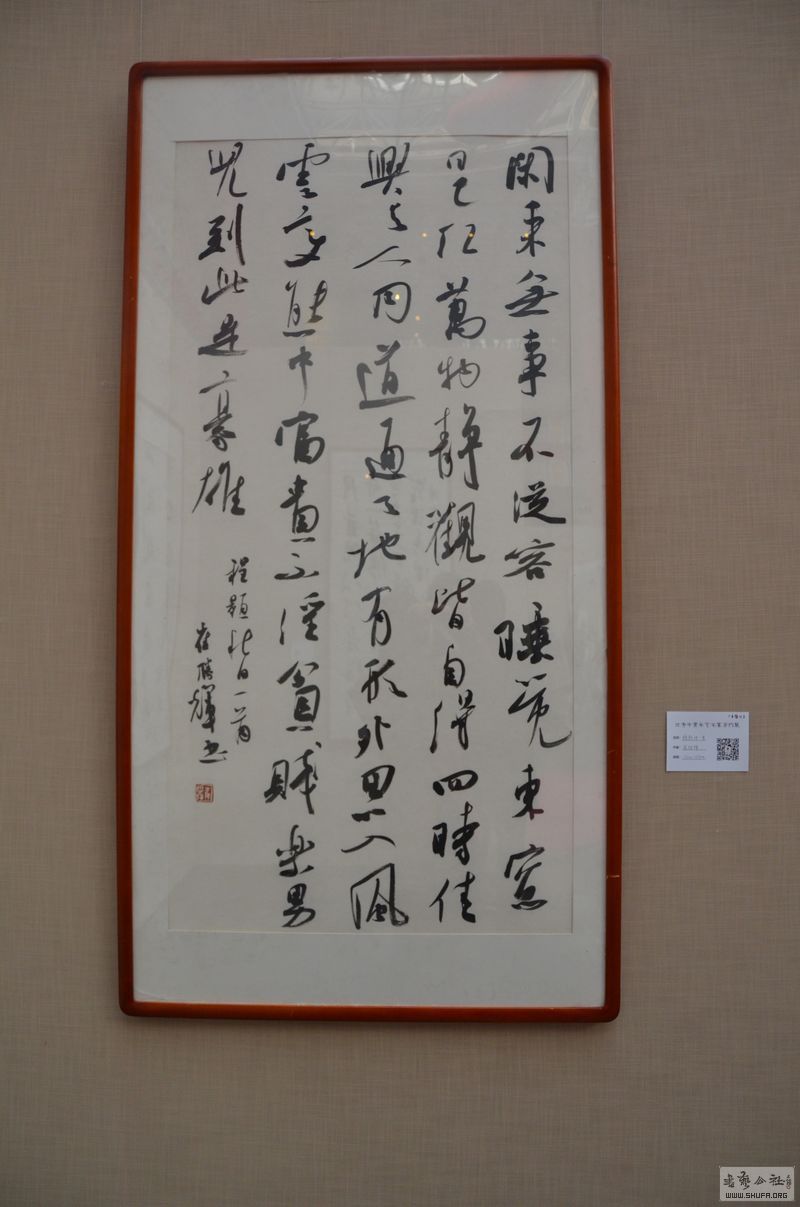 閑來無事不從容睡覺東窗
日已红萬物靜觀皆自得四時佳
興与人同道通天地有形外思入風
雲變態中富貴不淫貧賤樂男
兒到此是豪雄
程顥秋日一首
崔輝书
WWW.SHUFA.ORG